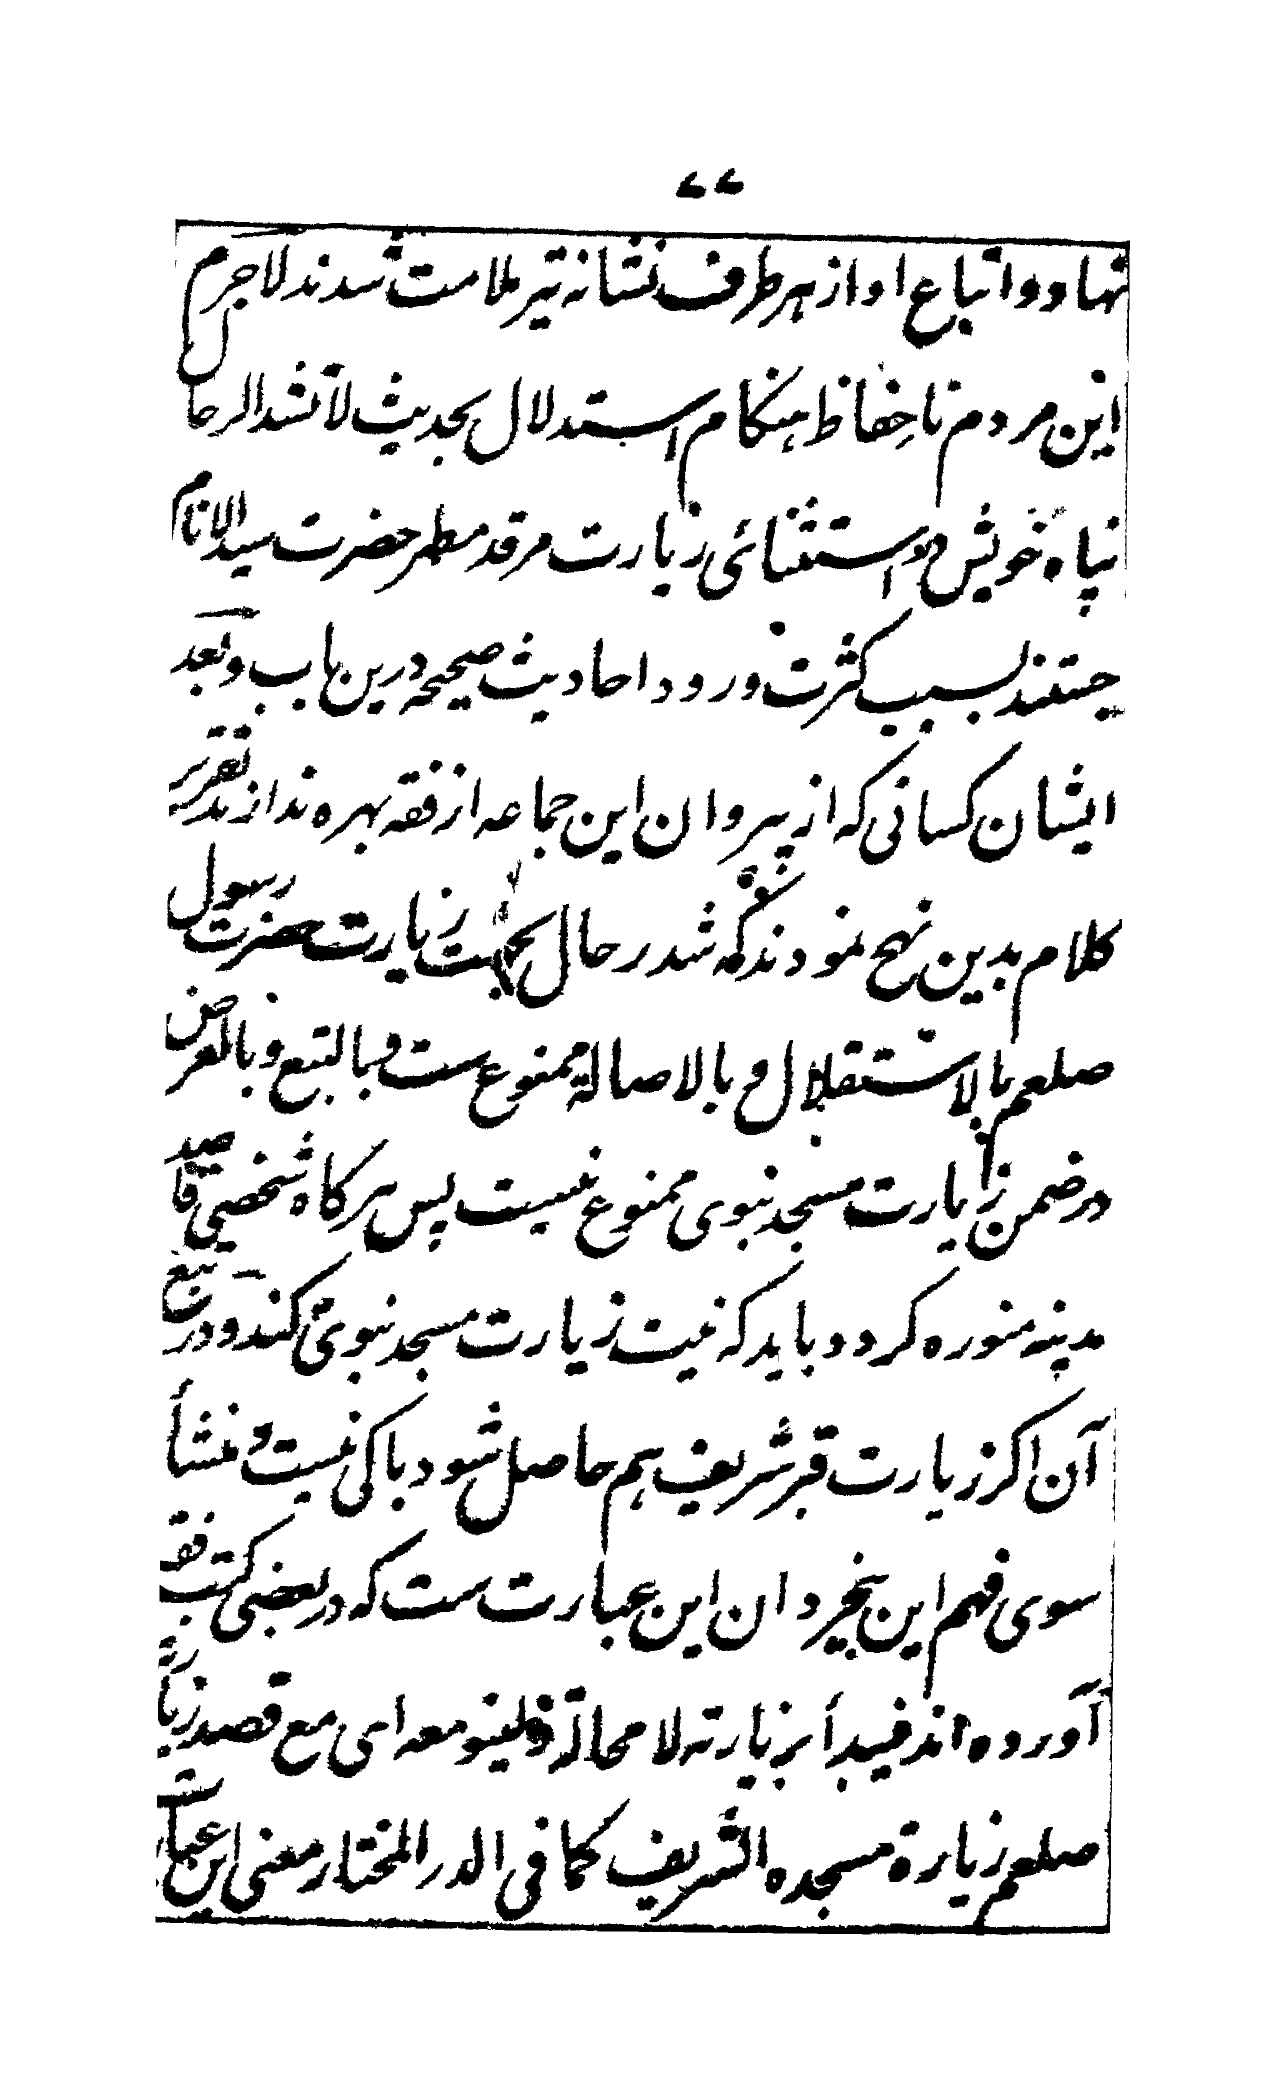 ۷۷
نهاد و و اتباع او از هر طرف نشانه تیر ملامت شدند لاجرم
این مردم ناحفاظ هنکام استدلال بحدیث لا تشد الرحال
پناه خویش در استثنائی زیارت مرقد مطهر حضرت سید الانام
جستند بسبب کثرت ورود احادیث صحیحه درین باب و بعد
ایشان کسانی که از پیروان این جماعه از فقه بهره ندارند تقریر
کلام بدین نهج نمودند که شد رحال بجهت زیارت حضرت رسول
صلعم بالاستقلال و بالاصالة ممنوع ست و بالتبع و بالعرض
در ضمن زیارت مسجد نبوی ممنوع نیست پس هر کاه شخصی قاصد
مدینه منوره کردد و باید که نیت زیارت مسجد نبوی کند و در تبع
آن اکر زیارت قبر شریف هم حاصل شود باکی نیست و منشأ
سوی فهم این بیخردان این عبارت ست که در بعضی کتب فقه
آورده اند فیبدأ بزیارته لا محالة ولینو معه ای مع قصد زیارته
صلعم زیارة مسجده الشریف کما فی الدر المختار معنی این عبارت